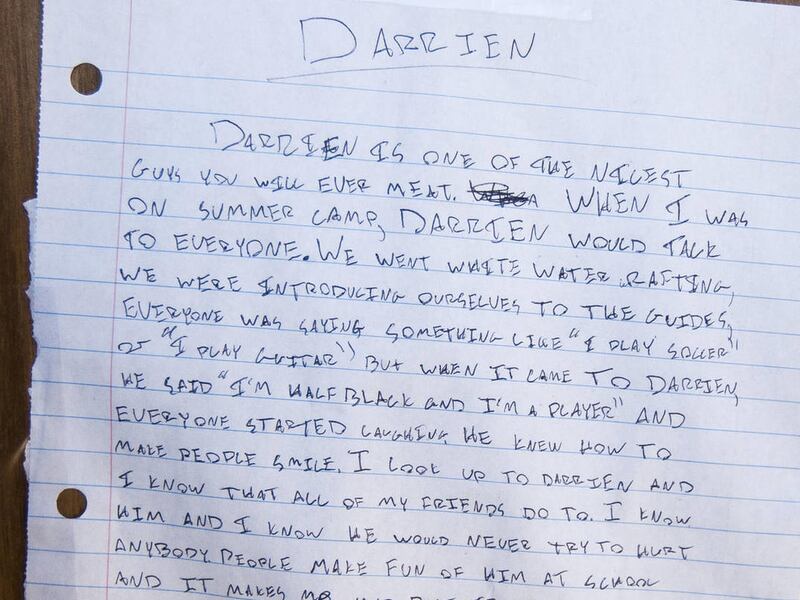 DARRIEN
DARRIEN IS ONE OF THE NICEST
GUYS YOU WILL EVER MEAT. WHEN I WAS
ON SUMMER CAMP, DARRIEN WOULD TALK
TO EVERYONE. WE WENT WHITE WATER RAFTING,
WE WERE INTRODUCING OURSELVES TO THE GUIDES,
EVERYONE WAS SAYING SOMETHING LIKE "I PLAY SOCCER"
OR "I PLAY GUITAR") BUT WHEN IT CAME TO DARRIEN,
HE SAID "I'M HALF BLACK AND I'M A PLAYER" AND
EVERYONE STARTED LAUGHING. HE KNEW HOW TO
MAKE PEOPLE SMILE. I LOOK UP TO DARRIEN AND
I KNOW THAT ALL OF MY FRIENDS DO TO. I KNOW
HIM AND I KNOW HE WOULD NEVER TRY TO HURT
ANYBODY. PEOPLE MAKE FUN OF HIM AT SCHOOL
AND IT MAKES